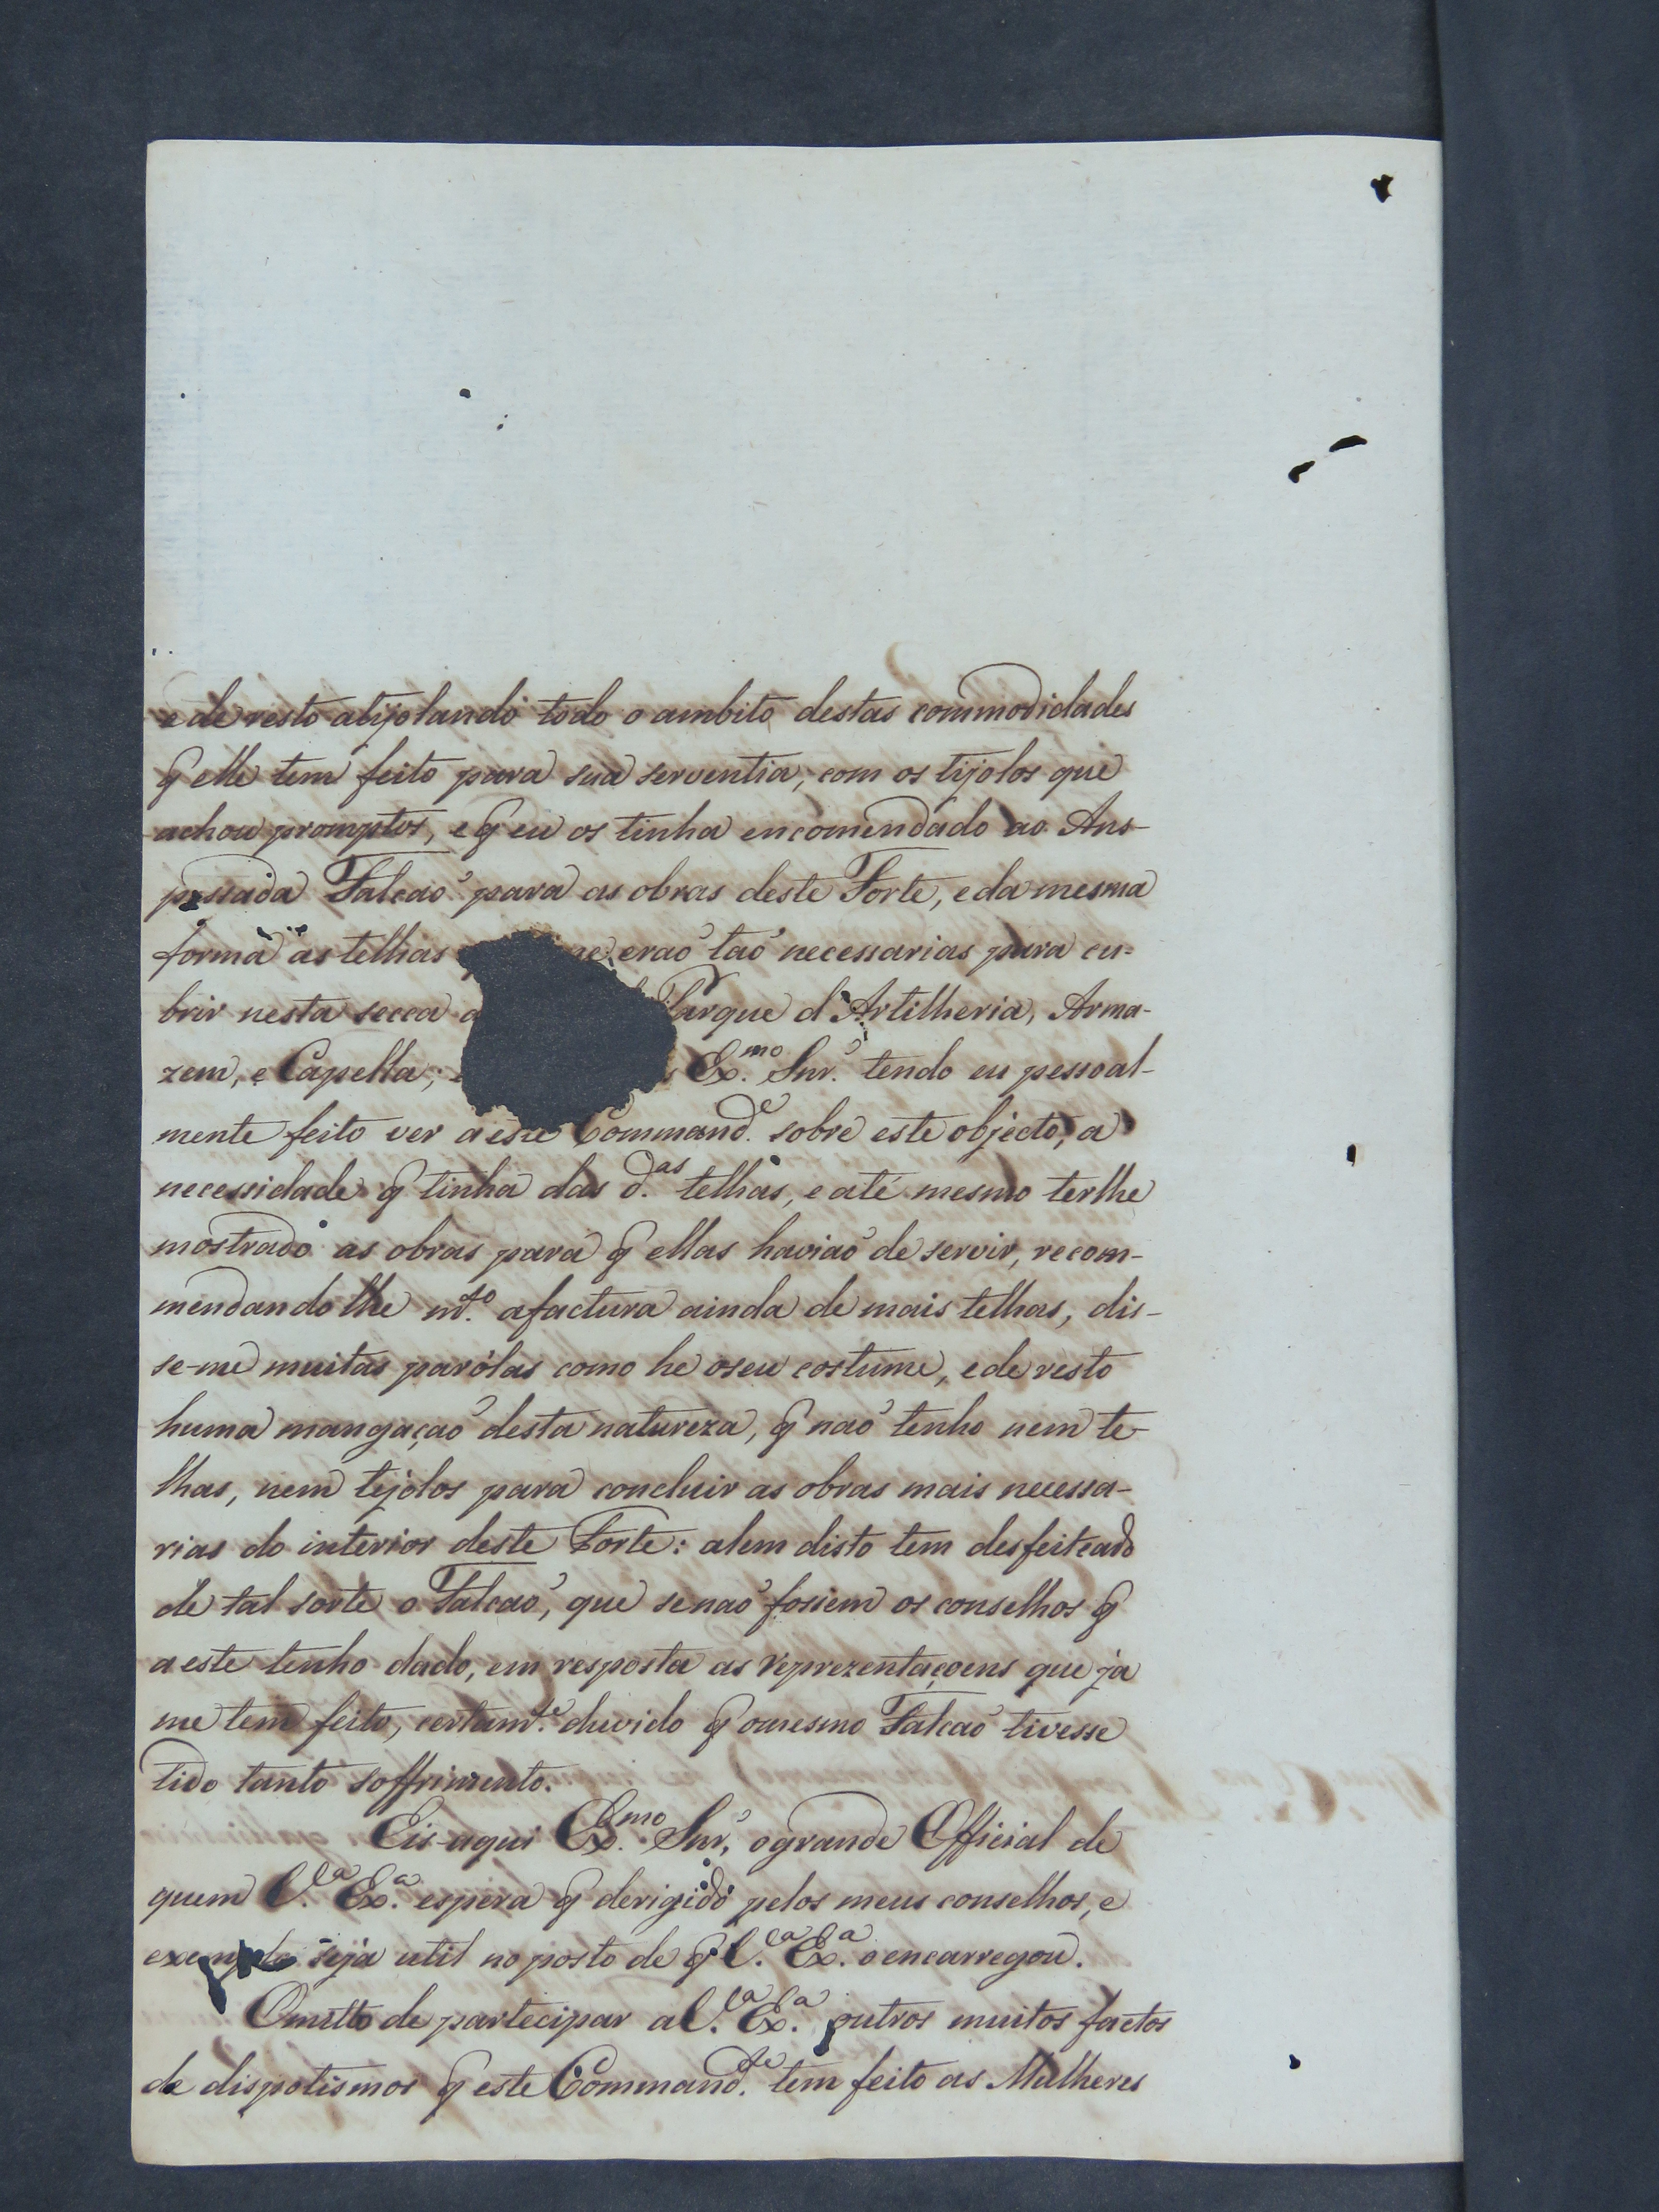 e de resto atijolando todo o ambito destas commodidades
q̃ elle tem feito para sua serventia, com os tijolos que
achou promptos, e q̃ eu os tinha encomendado ao Ans-
pessada Falcaõ para as obras deste Forte, e da mesma
forma as telhas eraõ taõ necessarias para cu-
brir nesta secca Parque d'Artilheria, Arma-
zem, e Capella; Ex.mo Snr. tendo eu pessoal-
mente feito ver a este Command.e sobre este objecto, a
necessidade q̃ tinha das d.as telhas, e até mesmo terlhe
mostrado as obras para q̃ ellas haviaõ de servir, recom-
mendandolhe mt.o a factura ainda de mais telhas, dis-
se-me muitas parólas como he o seu costume, e de resto
huma mangaçaõ desta natureza, q̃ naõ tenho nem te-
lhas, nem tijolos para concluir as obras mais necessa-
rias do interior deste Forte: alem disto tem desfeiteado
de tal sorte o Falcaõ, que se naõ fossem os conselhos q̃
a este tenho dado, em resposta as reprezentaçoens que ja
me tem feito, certam.te duvido q̃ o mesmo Falcaõ tivesse
tido tanto soffrimento.
Eis-aqui Ex.mo Snr., o grande Official de
quem V.a Ex.a espera q̃ derigido pelos meus conselhos, e
exemplo seja util no posto de q̃ V.a Ex.a o encarregou.
Omitto de partecipar a V.a Ex.a outros muitos factos
de dispotismos q̃ este Command.te tem feito as Mulheres